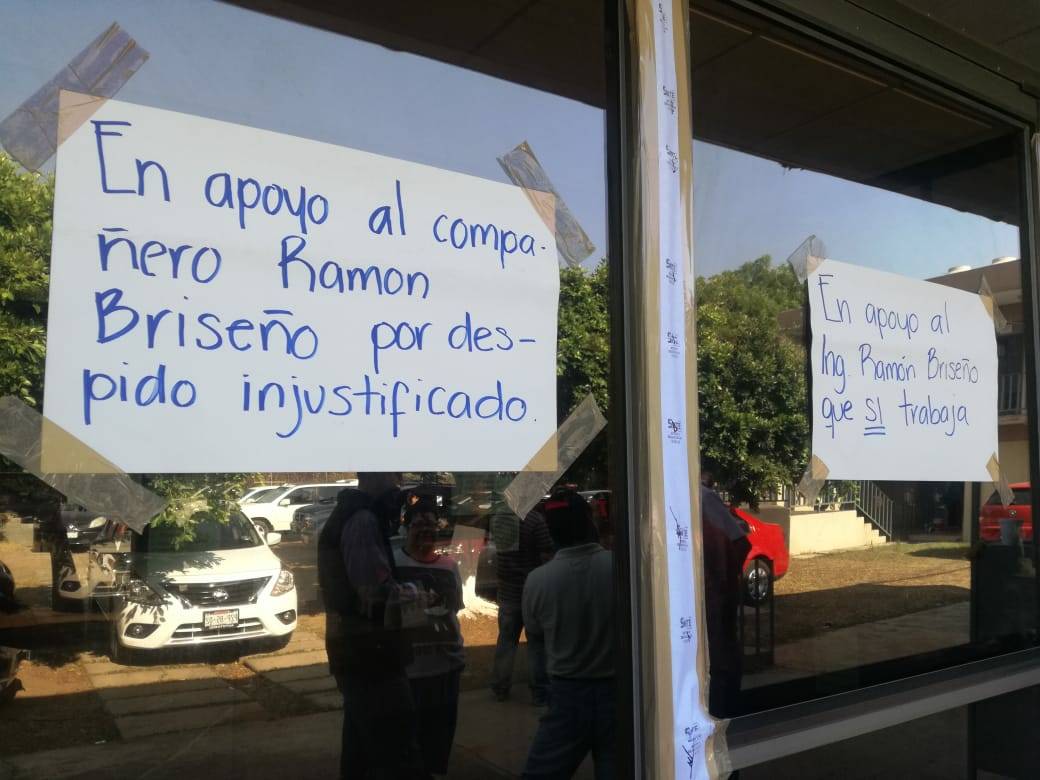 En apoyo al compa-
ñero Ramon
Briseño por des-
pido injustificado.
En apoyo al
Ing. Ramón Briseño
que SI trabaja